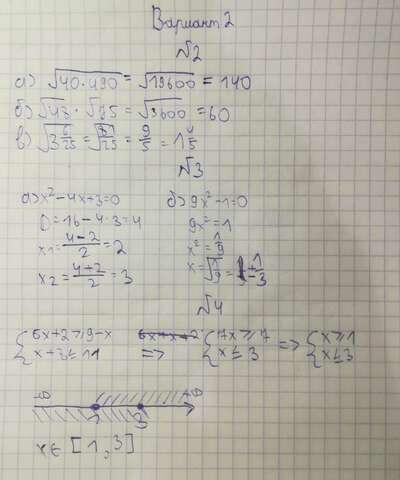 Вариант 2
№2
а) √40·490 = √19600 = 140
б) √48 · √75 = √3600 = 60
в) √3 6/25 = √81/25 = 9/5 = 1 4/5
№3
а) x²-4x+3=0
D=16-4·3=4
x₁=(4-2)/2=2
x₂=(4+2)/2=3
б) 9x²-1=0
9x²=1
x²=1/9
x=√1/9=±1/3
№4
{6x+2≥9-x => {7x≥7 => {x≥1
{x+3≤11 {x≤3 {x≤3
-∞ +∞
1 3
x∈[1,3]